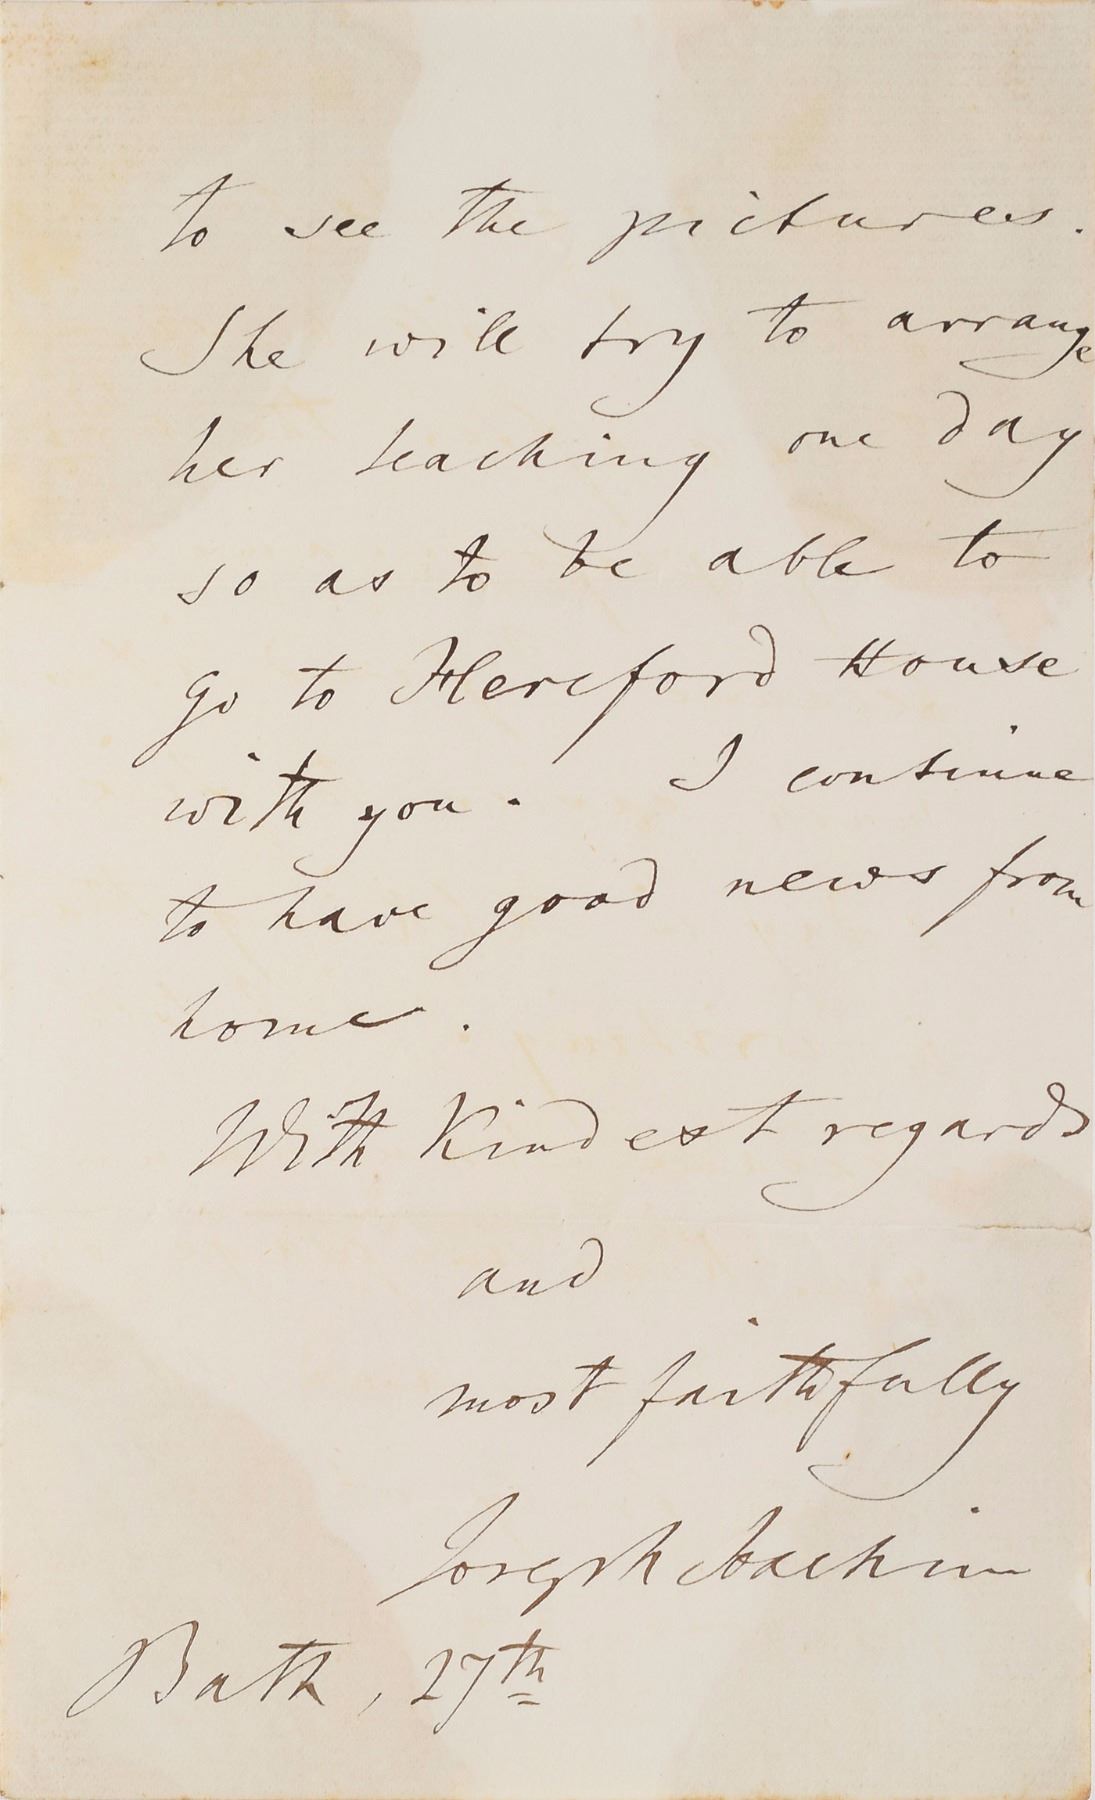 to see the pictures.
She will try to arrange
her teaching one day
so as to be able to
go to Hereford House
with you. I continue
to have good news from
home.
With kindest regards
and
most faithfully
Joseph Joachim
Bath, 27th